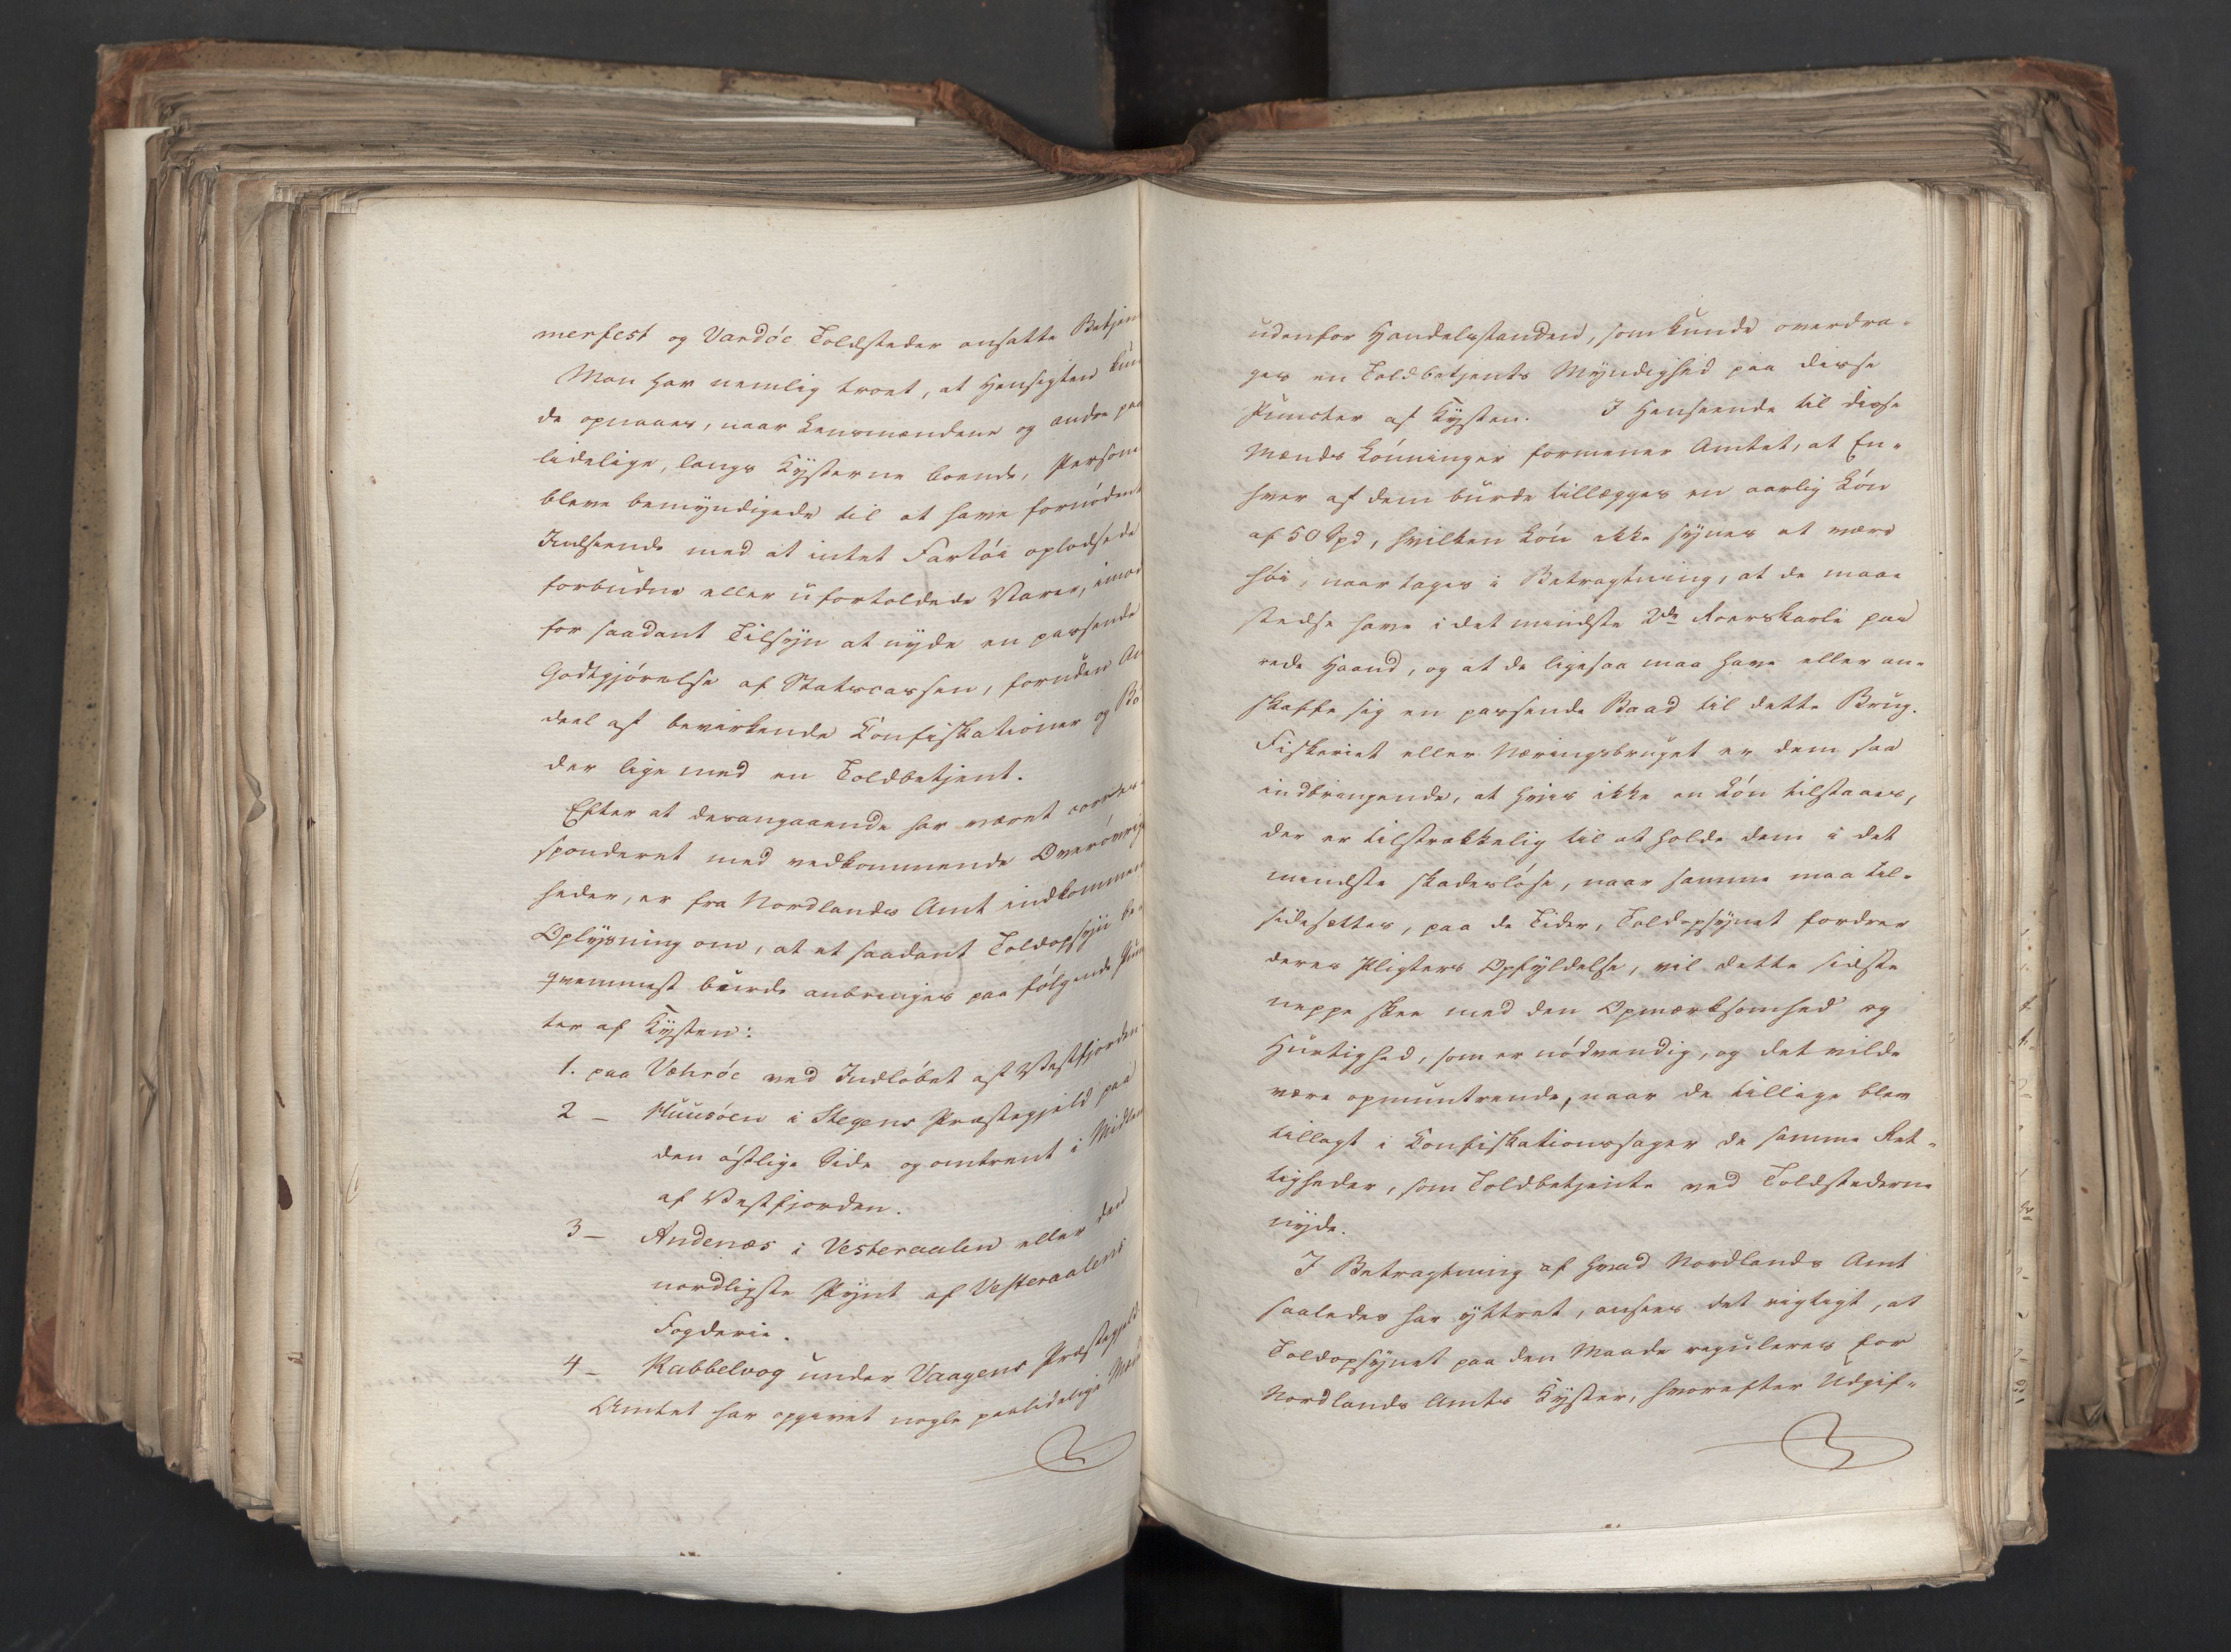 merfest og Vardöe Toldsteder ansatte Betjen
Man har nemlig troet, at Hensigten kun
de opnaaes, naar Lensmændene og andre paa
lidelige, langs Kysterne boende, Person
bleve bemyndigede til at have fornödent
Indseende med at intet Fartöi oplodsede
forbudne eller ufortoldede Varer, imod
for saadant Tilsyn at nyde en passende
Godtgjörelse af Statscassen, foruden An
deel af bevirkende Confiskationer og Bö
der lige med en Toldbetjent.
Efter at desangaaende har været corre
sponderet med vedkommende Överövrig
heder, er fra Nordlands Amt indkommen
Oplysning om, at et saadant Toldopsyn be-
qvemmest burde anbringes paa fölgende Punc
ter af Kysten:
1. paa Væhröe ved Indlöbet af Vestfjorden
2 – Huusöen i Stegens Præstegjeld paa
den östlige Side og omtrent i Midten
af Vestfjorden.
3 – Andenæs i Vesteraalen eller den
nordligste Pynt af Vesteraalens
Fogderie.
4 – Kabbelvog under Vaagens Præstegjeld
Amtet har opgivet nogle paalidelige Mænd
udenfor Handelsstanden, som kunde overdra-
ges en Toldbetjents Myndighed paa disse
Puncter af Kysten. I Henseende til disse
Mænds Lönninger formener Amtet, at En-
hver af dem burde tillægges en aarlig Lön
af 50 Spd, hvilken Lön ikke synes at være
höi, naar tages i Betragtning, at de maae
stedse have i det mindste 2de Roerskarle paa
rede Haand, og at de ligesaa maa have eller an-
skaffe sig en passende Baad til dette Brug.
Fiskeriet eller Næringsbruget er dem saa
indbringende, at hvis ikke en Lön tilstaaes,
der er tilstrækkelig til at holde dem i det
mindste skadeslöse, naar samme maa til-
sidesættes, paa de Tider, Toldopsynet fordrer
deres Pligters Opfyldelse, vil dette sidste
neppe skee med den Opmærksomhed og
Hurtighed, som er nödvendig, og det vilde
være opmuntrende, naar de tillige blev
tillagt i Confiskationssager de samme Ret-
tigheder, som Toldbetjente ved Toldstederne
nyde.
I Betragtning af hvad Nordlands Amt
saaledes har yttret, ansees det rigtigt, at
Toldopsynet paa den Maade reguleres for
Nordlands Amts Kyster, hvorefter Udgif-